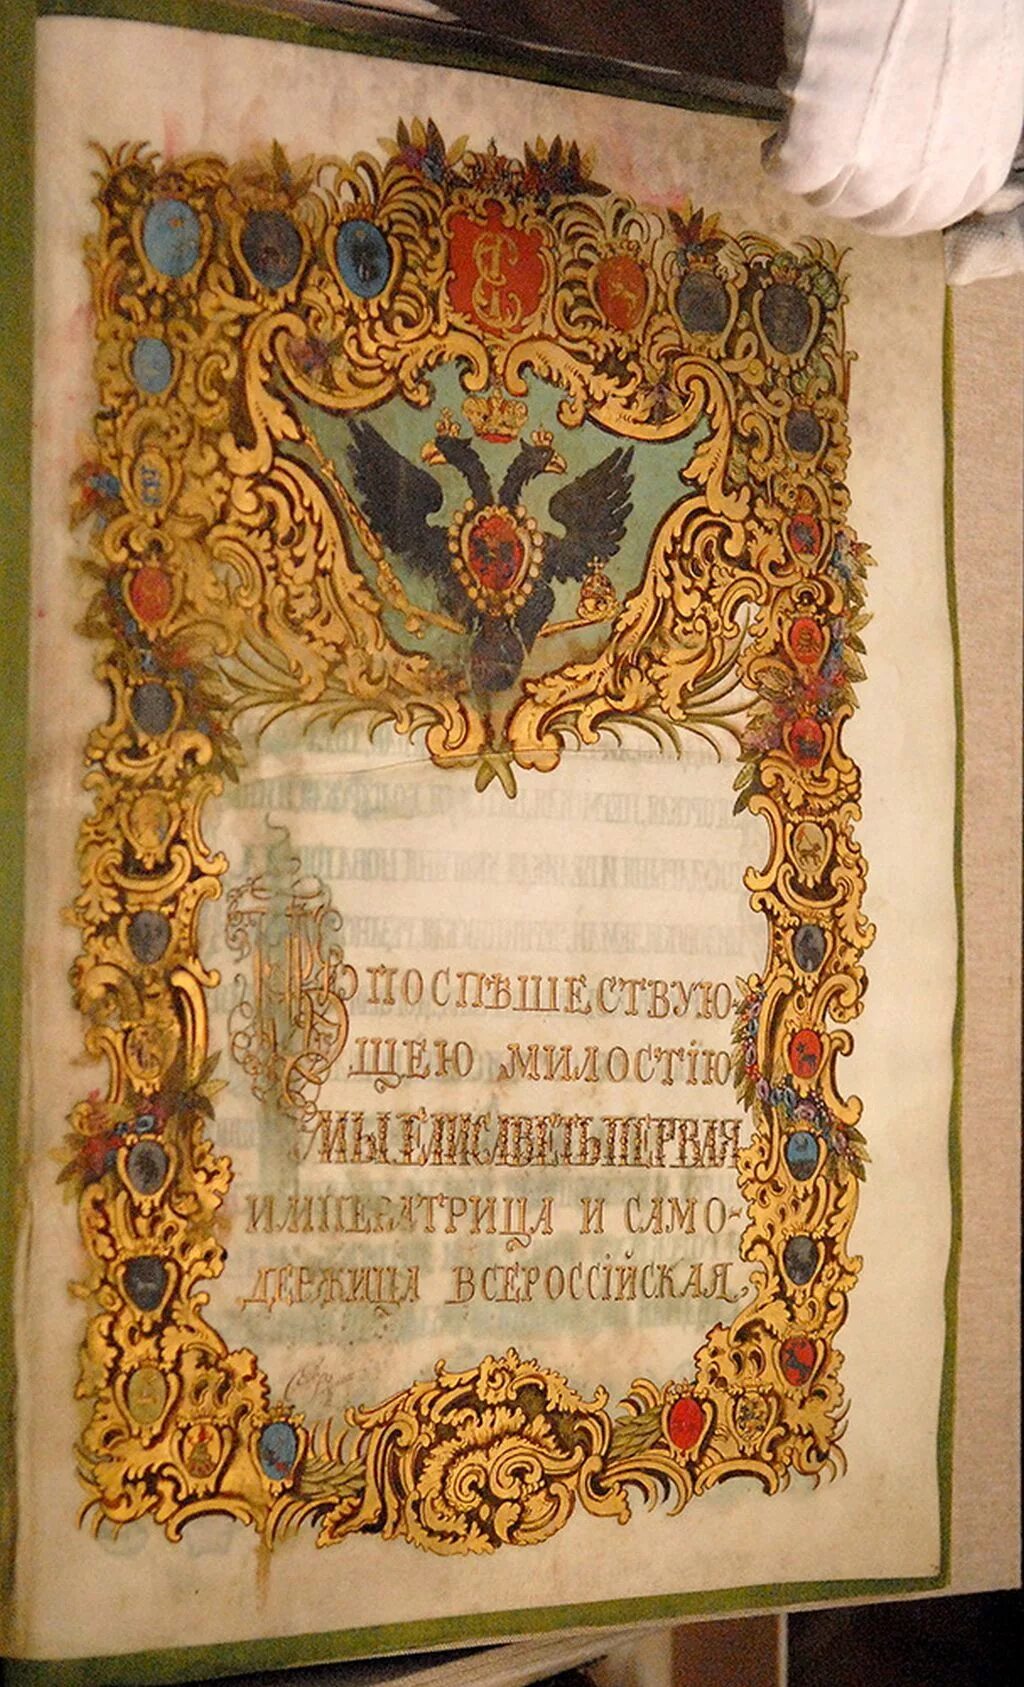 Б҃ЖІЕЮ ПОСПѢШЕСТВУЮ-
ЩЕЮ МИЛОСТІЮ
МЫ ЕЛИСАВЕТЪ ПЕРВАЯ
ИМПЕРАТРИЦА И САМО-
ДЕРЖИЦА ВСЕРОССІЙСКАЯ,